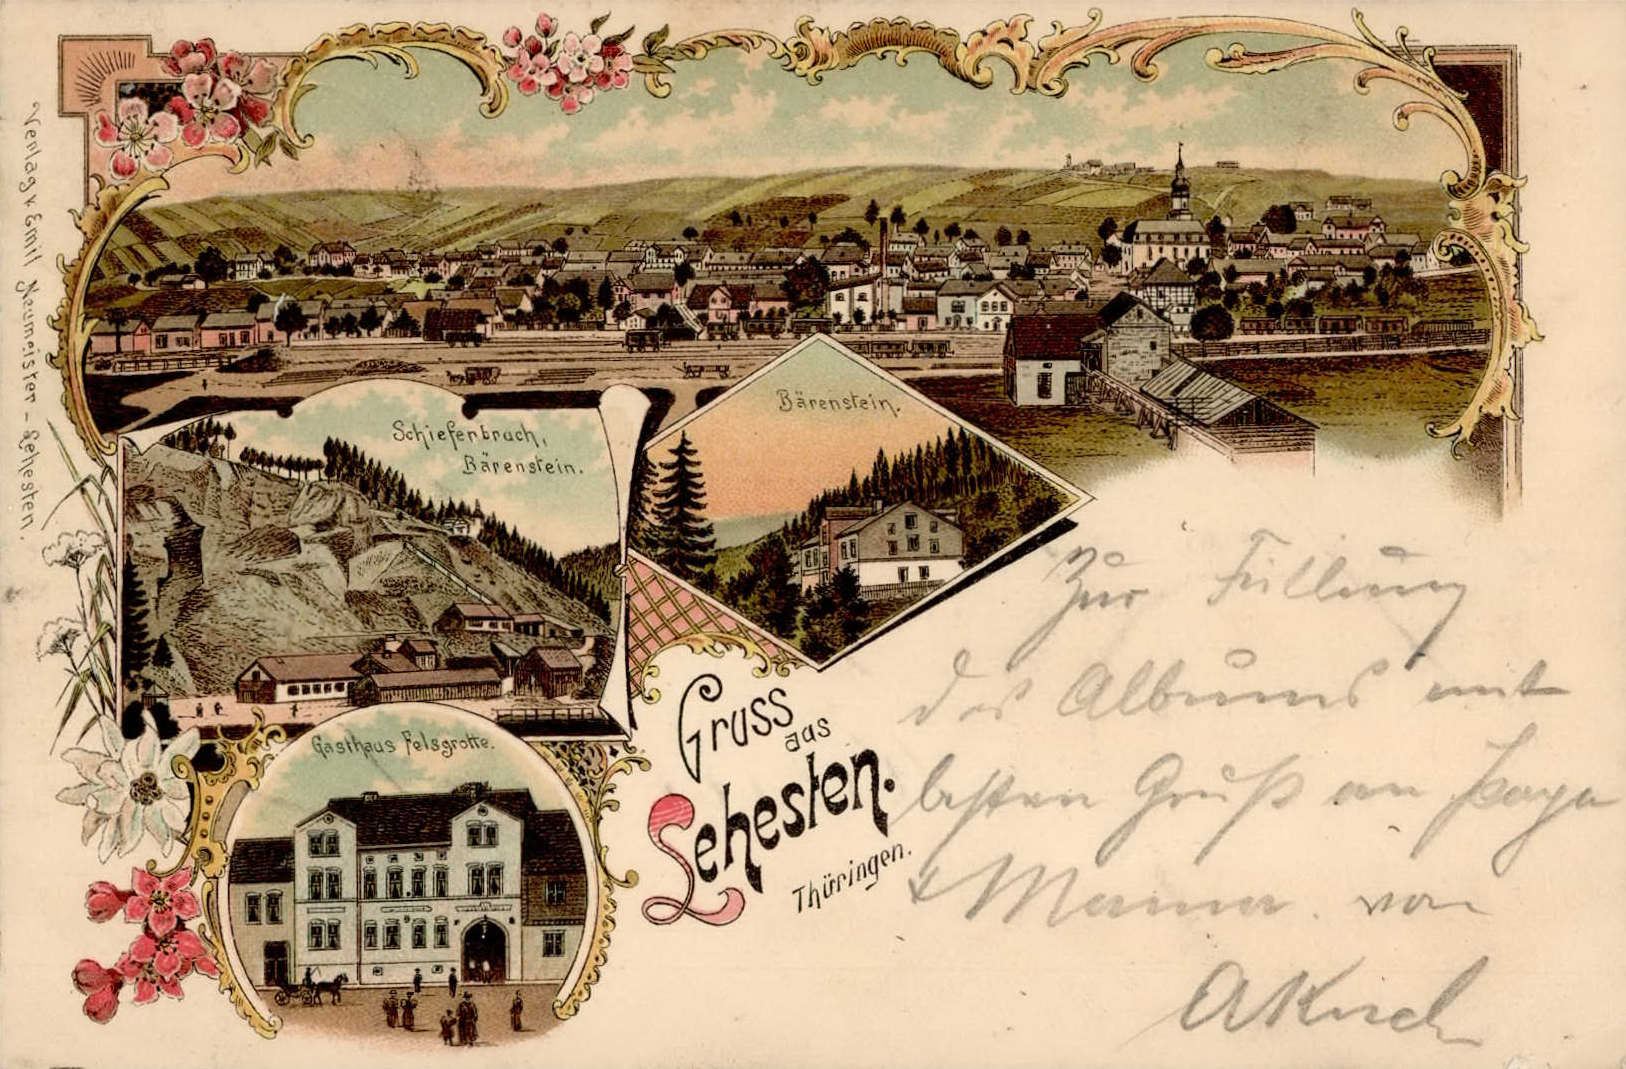 Verlag v. Emil Neumeister - Lehesten.
Schieferbruch,
Bärenstein.
Bärenstein.
Gasthaus Felsgrotte.
Gruss
aus
Lehesten.
Thüringen.
Zur Füllung
des Albums mit
besten Gruß an Papa
+ Mama. von